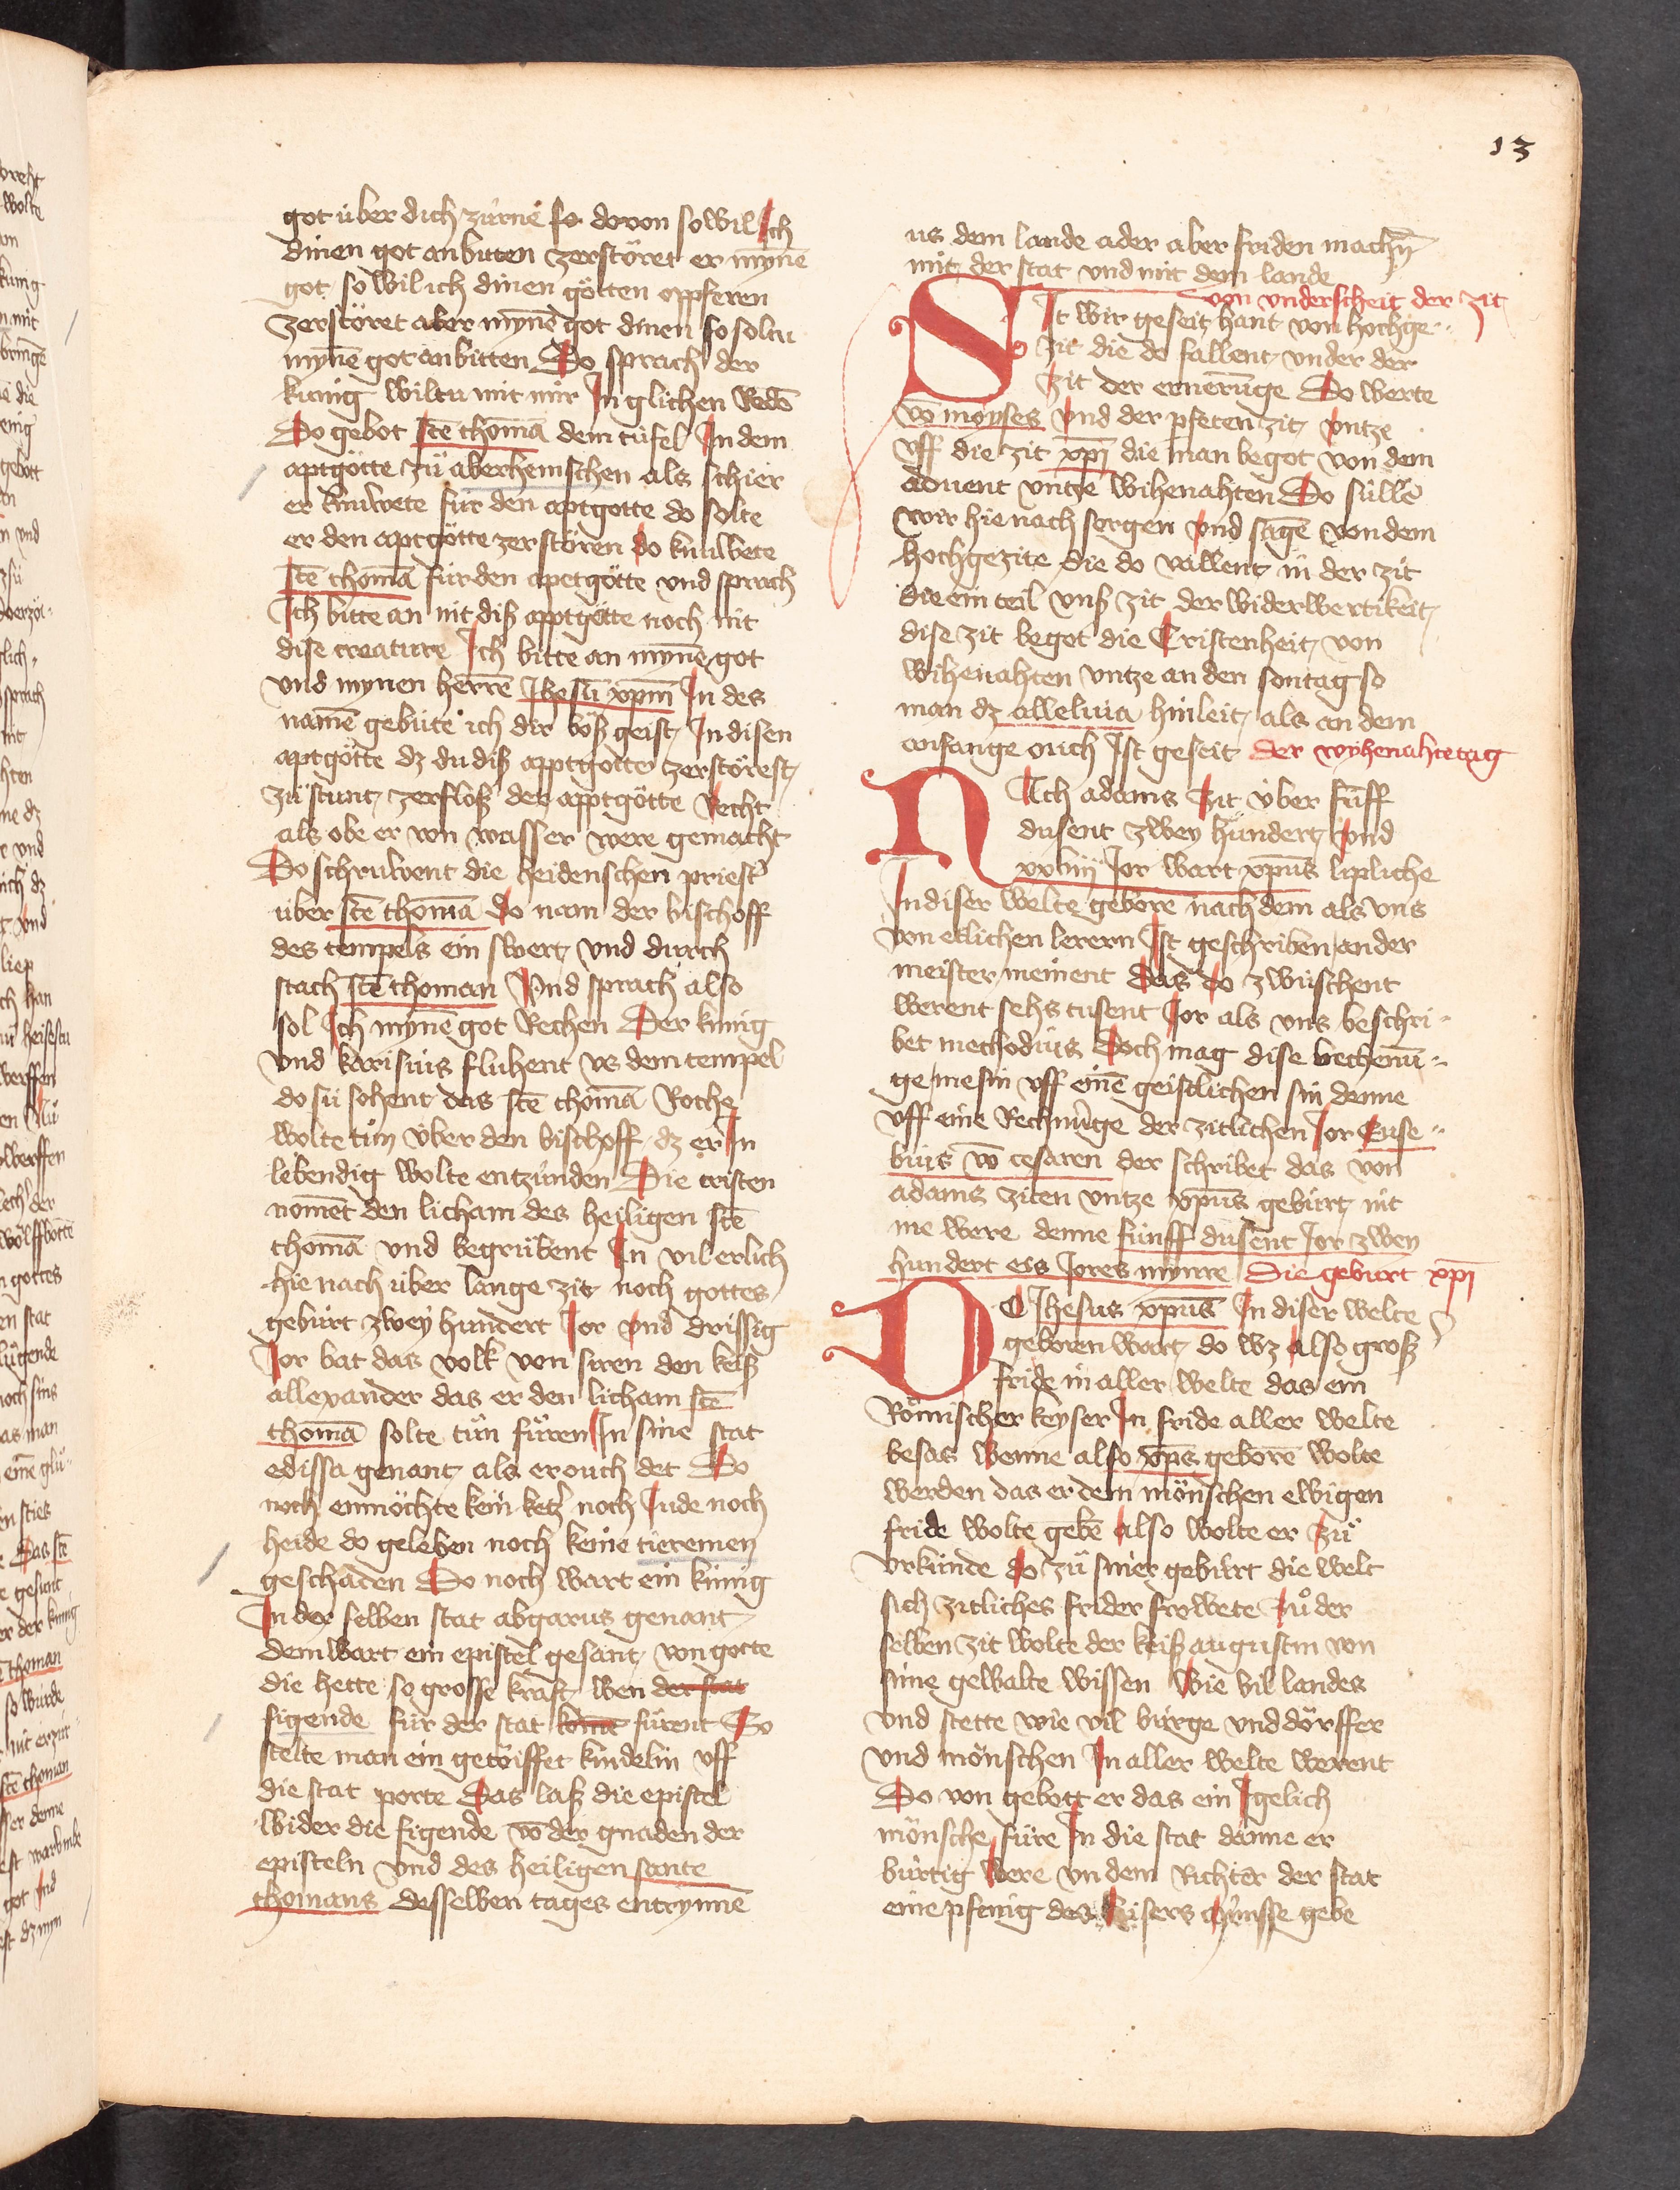 13
got über dich zúrne so dovon so wil Ich
dinen got anbitten zerstöret er mynē
got so wil ich dinen götten oppferen
zerstöret aber mynē got dinen so soltu
mynē got anbitten Do sprach der
kúnig wiltu mit mir In glichen Redē
Do gebot stē thomā dem túfel In dem
aptgötte zů aberhemschen als schier
er knúwete für den aptgotte do solte
er den aptgötte zerstören do knúwete
stē thomā fúr den apetgötte und sprach
Ich bitte an nit diß apptgötte noch nit
dise creature Ich bitte an mynē got
und mynen herrē Ihesū xp̄m In des
namē gebúte ich dir böß geist In disen
aptgötte dz du diß apptgotte zerstörest
zů stunt zerfloß der apptgötte Recht
als obe er von wasser were gemacht
Do schruwent die heidenschen priest̄
über stē thomā do nam der bischoff
des tempels ein swert und durch
stach stē thoman Und sprach also
sol Ich mynē got Rechen Der kúnig
und karisius fluhent us dem tempel
do sú sohent das stē thomā Roche
wolte tůn über den bischoff dz er In
lebendig wolte entzúnden Die cristen
nomēt den licham des heiligen stē
thomā und begrůbent In vil erlich
hie nach über lange zit noch gottes
gebúrt zwey hundert Jor und drissig
Jor bat das volk von siren den keiß
allexander das er den licham stē
thomā solte tůn fůren In sine stat
edissa genant als er ouch det Do
noch enmöchte kein ketz̄ noch Jude noch
heide do geleben noch keine tieremen
geschaden Do noch wart ein kúnig
In der selben stat abgarus genant
dem wart ein epistel gesant von gotte
die hette so grosse kraft wen der stat
figende für der stat komē fúrent So
stelte man ein getöiffet kindelin uff
die stat porte Das laß die epistel
wider die figende vō der gnaden der
episteln und des heiligen sante
thomans desselben tages entrynnē
us dem lande ader aber friden mach̄n
mit der stat und mit dem lande
von underscheit der zit
SIt wir geseit hant von hochge-
zit die do fallent under der
zit der ernerūge Do werte
vō moyses Und der pfeten zit untze
uff die zit xp̄i die man begot von dem
advent untze wihenahten Do súllē
wir hie nach sorgen und sagē von dem
hochgezite die do vallent in der zit
die ein teil unß zit der widerwertikeit
dise zit begot die Cristenheit von
wihenahten untze an den sontag so
man dz alleluia hinleit als an dem
anfange ouch Ist geseit der wyhenahtetag
NAch adams zit über fúff
dusent zwey hundert und
xxviij Jor wart xp̄us lipliche
In diser welte geborē nach dem als uns
von etlichen lerern Ist geschriben ander
meister meinent das do zwúschent
werent sehs tusent Jor als uns beschri-
bet methodius Doch mag dise rechenū-
ge me sin uff einē geistlichen sin denne
uff eine Rechnūge der zitlichen Jor Euse-
bius vō cesaren der schribet das von
adams ziten untze xp̄us gebúrt nit
me were denne fúnff dusent Jor zwey
hundert ess Jores mynre Die geburt xp̄i
DO Ihesus xp̄us In diser welte
geboren wart do wz also groß
fride in aller welte das ein
Römischer keyser In fride aller welte
besas wenne also xp̄s geborē wolte
werden das er dem mönschen ewigen
fride wolte gebē also wolte er zů
urkúnde do zů siner gebúrt die welt
sich zitliches frider frowete zů der
selben zit wolte der keiß augustin von
sime gewalte wissen wie vil landes
und stette wie vil búrge und dörffer
und mönschen In aller welte werent
Do von gebott er das ein Igelich
mönsche fúre In die stat danne er
búrtig were un dem Richter der stat
eine pfenig des keisers mynsse gebe